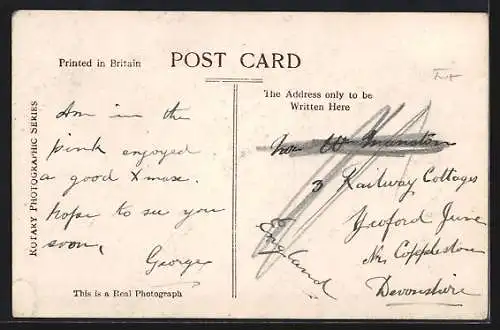 Printed in Britain
POST CARD
The Address only to be
Written Here
ROTARY PHOTOGRAPHIC SERIES
Am in the
pink enjoyed
a good Xmas.
hope to see you
soon,
George
This is a Real Photograph
W
3 Railway Cottages
Yeoford Junc
Nr Copplestone
Devonshire
England